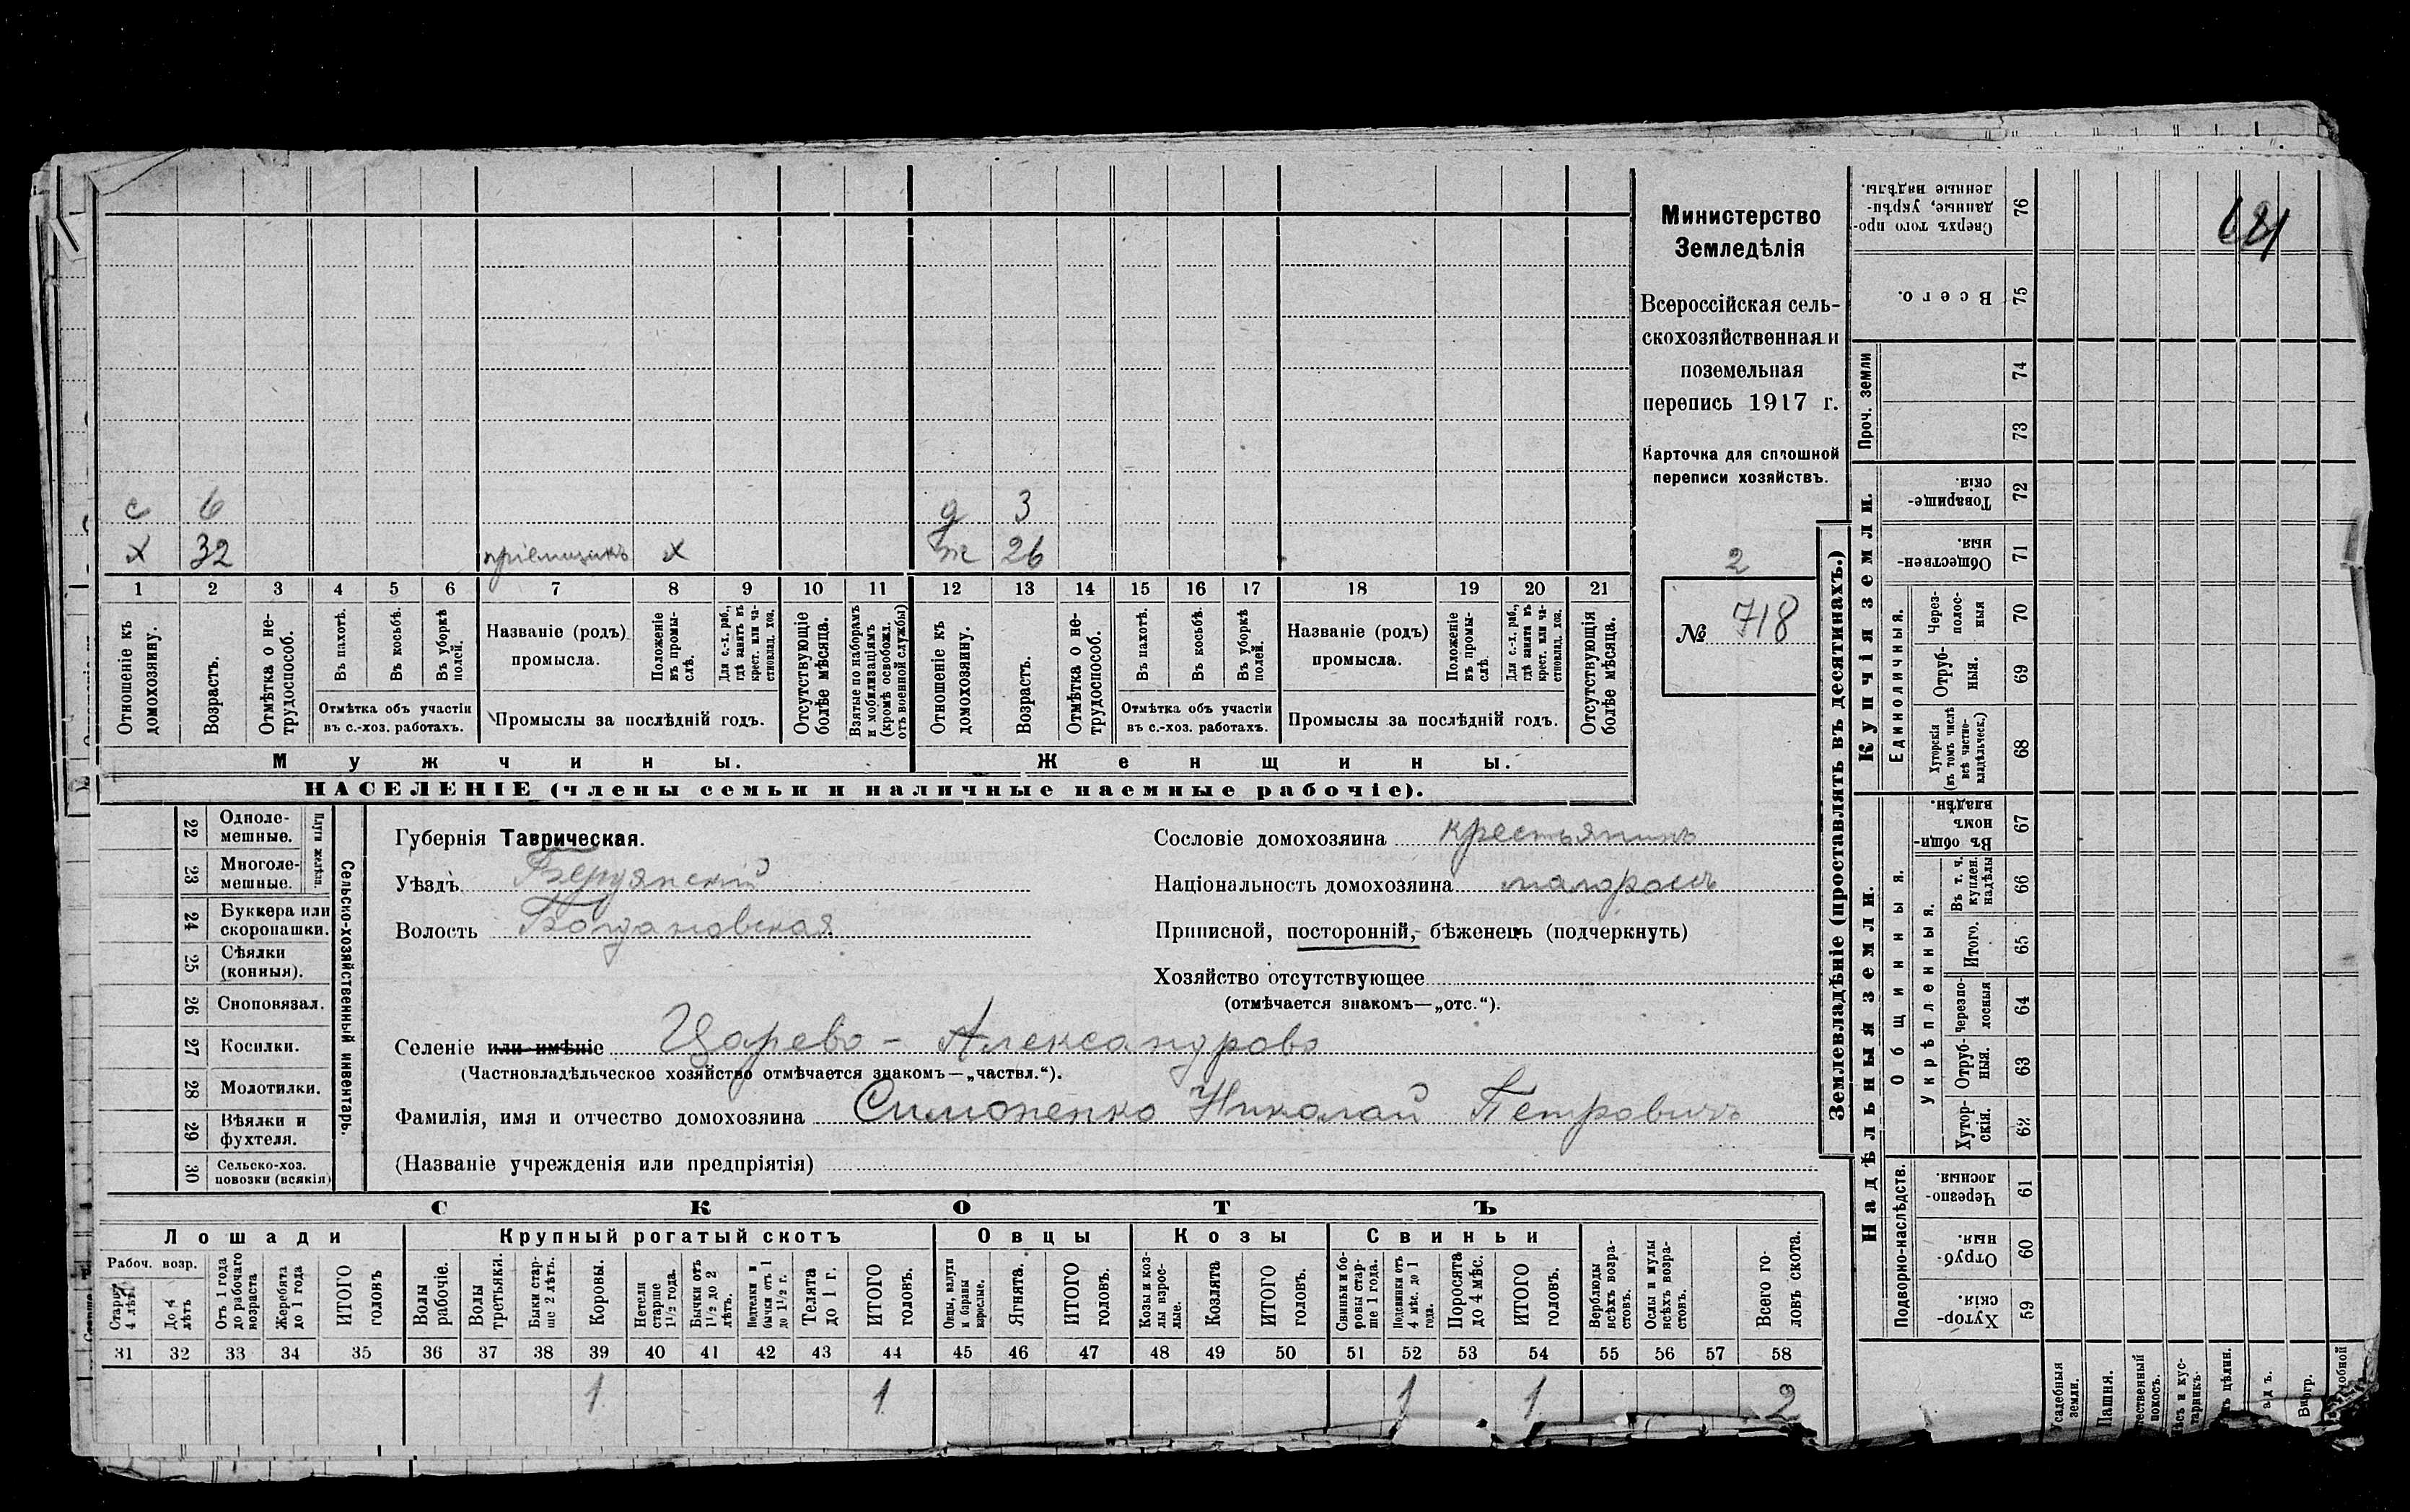 с 6 д 3
х 32 пріемщикъ х ж 26
1 2 3 4 5 6 7 8 9 10 11 12 13 14 15 16 17 18 19 20 21
Отношеніе къ домохозяину.
Возрастъ.
Отмѣтка о не-
трудоспособ.
Въ пахотѣ.
Въ косьбѣ.
Въ уборкѣ полей.
Отмѣтка объ участіи
въ с.-хоз. работахъ.
Названіе (родъ)
промысла.
Положеніе въ промы-
слѣ.
Для с.-х. раб., гдѣ занятъ въ крест. или ча-
стновлад. хоз.
Промыслы за послѣдній годъ.
Отсутствующіе болѣе мѣсяца.
Взятые по наборамъ и мобилизаціямъ (кромѣ освобожд. отъ военной службы)
Отношеніе къ домохозяину.
Возрастъ.
Отмѣтка о не-
трудоспособ.
Въ пахотѣ.
Въ косьбѣ.
Въ уборкѣ полей.
Отмѣтка объ участіи
въ с.-хоз. работахъ.
Названіе (родъ)
промысла.
Положеніе въ промы-
слѣ
Для с.-х. раб., гдѣ занята въ крест. или ча-
стновлад. хоз.
Промыслы за послѣдній годъ.
Отсутствующія болѣе мѣсяца.
Мужчины.
Женщины.
НАСЕЛЕНІЕ (члены семьи и наличные наемные рабочіе).
Министерство
Земледѣлія
Всероссійская сель-
скохозяйственная и
поземельная
перепись 1917 г.
Карточка для сплошной
переписи хозяйствъ.
2
№ 718
22 Одноле-
мешные.
23 Многоле-
мешные.
Плуги желѣзн.
24 Буккера или
скоропашки.
25 Сѣялки
(конныя).
26 Сноповязал.
27 Косилки.
28 Молотилки.
29 Вѣялки и
фухтеля.
30 Сельско-хоз.
повозки (всякія)
Сельско-хозяйственный инвентарь.
Губернія Таврическая.
Уѣздъ Бердянскій
Волость Богдановская
Сословіе домохозяина крестьянинъ
Національность домохозяина малороссъ
Приписной, посторонній, бѣженецъ (подчеркнуть)
Хозяйство отсутствующее
(отмѣчается знакомъ—„отс.“).
Селеніе или имѣніе Царево - Александрово
(Частновладѣльческое хозяйство отмѣчается знакомъ—„частвл.“).
Фамилія, имя и отчество домохозяина Симоненко Николай Петровичъ
(Названіе учрежденія или предпріятія)
СКОТЪ
Лошади Крупный рогатый скотъ Овцы Козы Свиньи
Рабоч. возр.
Старше 4 лѣтъ
До 4 лѣтъ
Отъ 1 года до рабочаго возраста
Жеребята до 1 года
ИТОГО головъ
Волы рабочіе.
Волы третьяки.
Быки стар-
ше 2 лѣтъ.
Коровы.
Нетели старше 1 1/2 года.
Бычки отъ 1 1/2 до 2 лѣтъ.
Нетелки и бычки отъ 1 до 1 1/2 г.
Телята до 1 г.
ИТОГО головъ.
Овцы, валухи и бараны взрослые.
Ягнята.
ИТОГО головъ.
Козы и коз-
лы взрос-
лые.
Козлята
ИТОГО головъ.
Свиньи и бо-
ровы стар-
ше 1 года.
Подсвинки отъ 4 мѣс. до 1 года.
Поросята до 4 мѣс.
ИТОГО головъ.
Верблюды всѣхъ возра-
стовъ.
Ослы и мулы всѣхъ возра-
стовъ.
Всего го-
ловъ скота.
31 32 33 34 35 36 37 38 39 40 41 42 43 44 45 46 47 48 49 50 51 52 53 54 55 56 57 58
1 1 1 1 2
Землевладѣніе (проставлять въ десятинахъ.)
Купчія земли.
Надѣльныя земли.
Сверхъ того про-
данные, укрѣп-
ленные надѣлы. 76
681
Всего. 75
Проч. земли
74
73
Товарище-
скія. 72
Обществен-
ныя. 71
Единоличныя.
Через-
полос-
ныя 70
Отруб-
ныя. 69
Хуторскія (въ томъ числѣ всѣ частно-
владѣльческ.) 68
Общинныя.
Въ общин-
номъ владѣн. 67
Укрѣпленныя.
Въ т. ч. куплен. надѣлы 66
Итого. 65
Черезпо-
лосныя 64
Отруб-
ныя. 63
Хутор-
скія. 62
Подворно-наслѣдств.
Черезпо-
лосныя. 61
Отруб-
ныя. 60
Хутор-
скія. 59
Усадебныя земли.
Пашня.